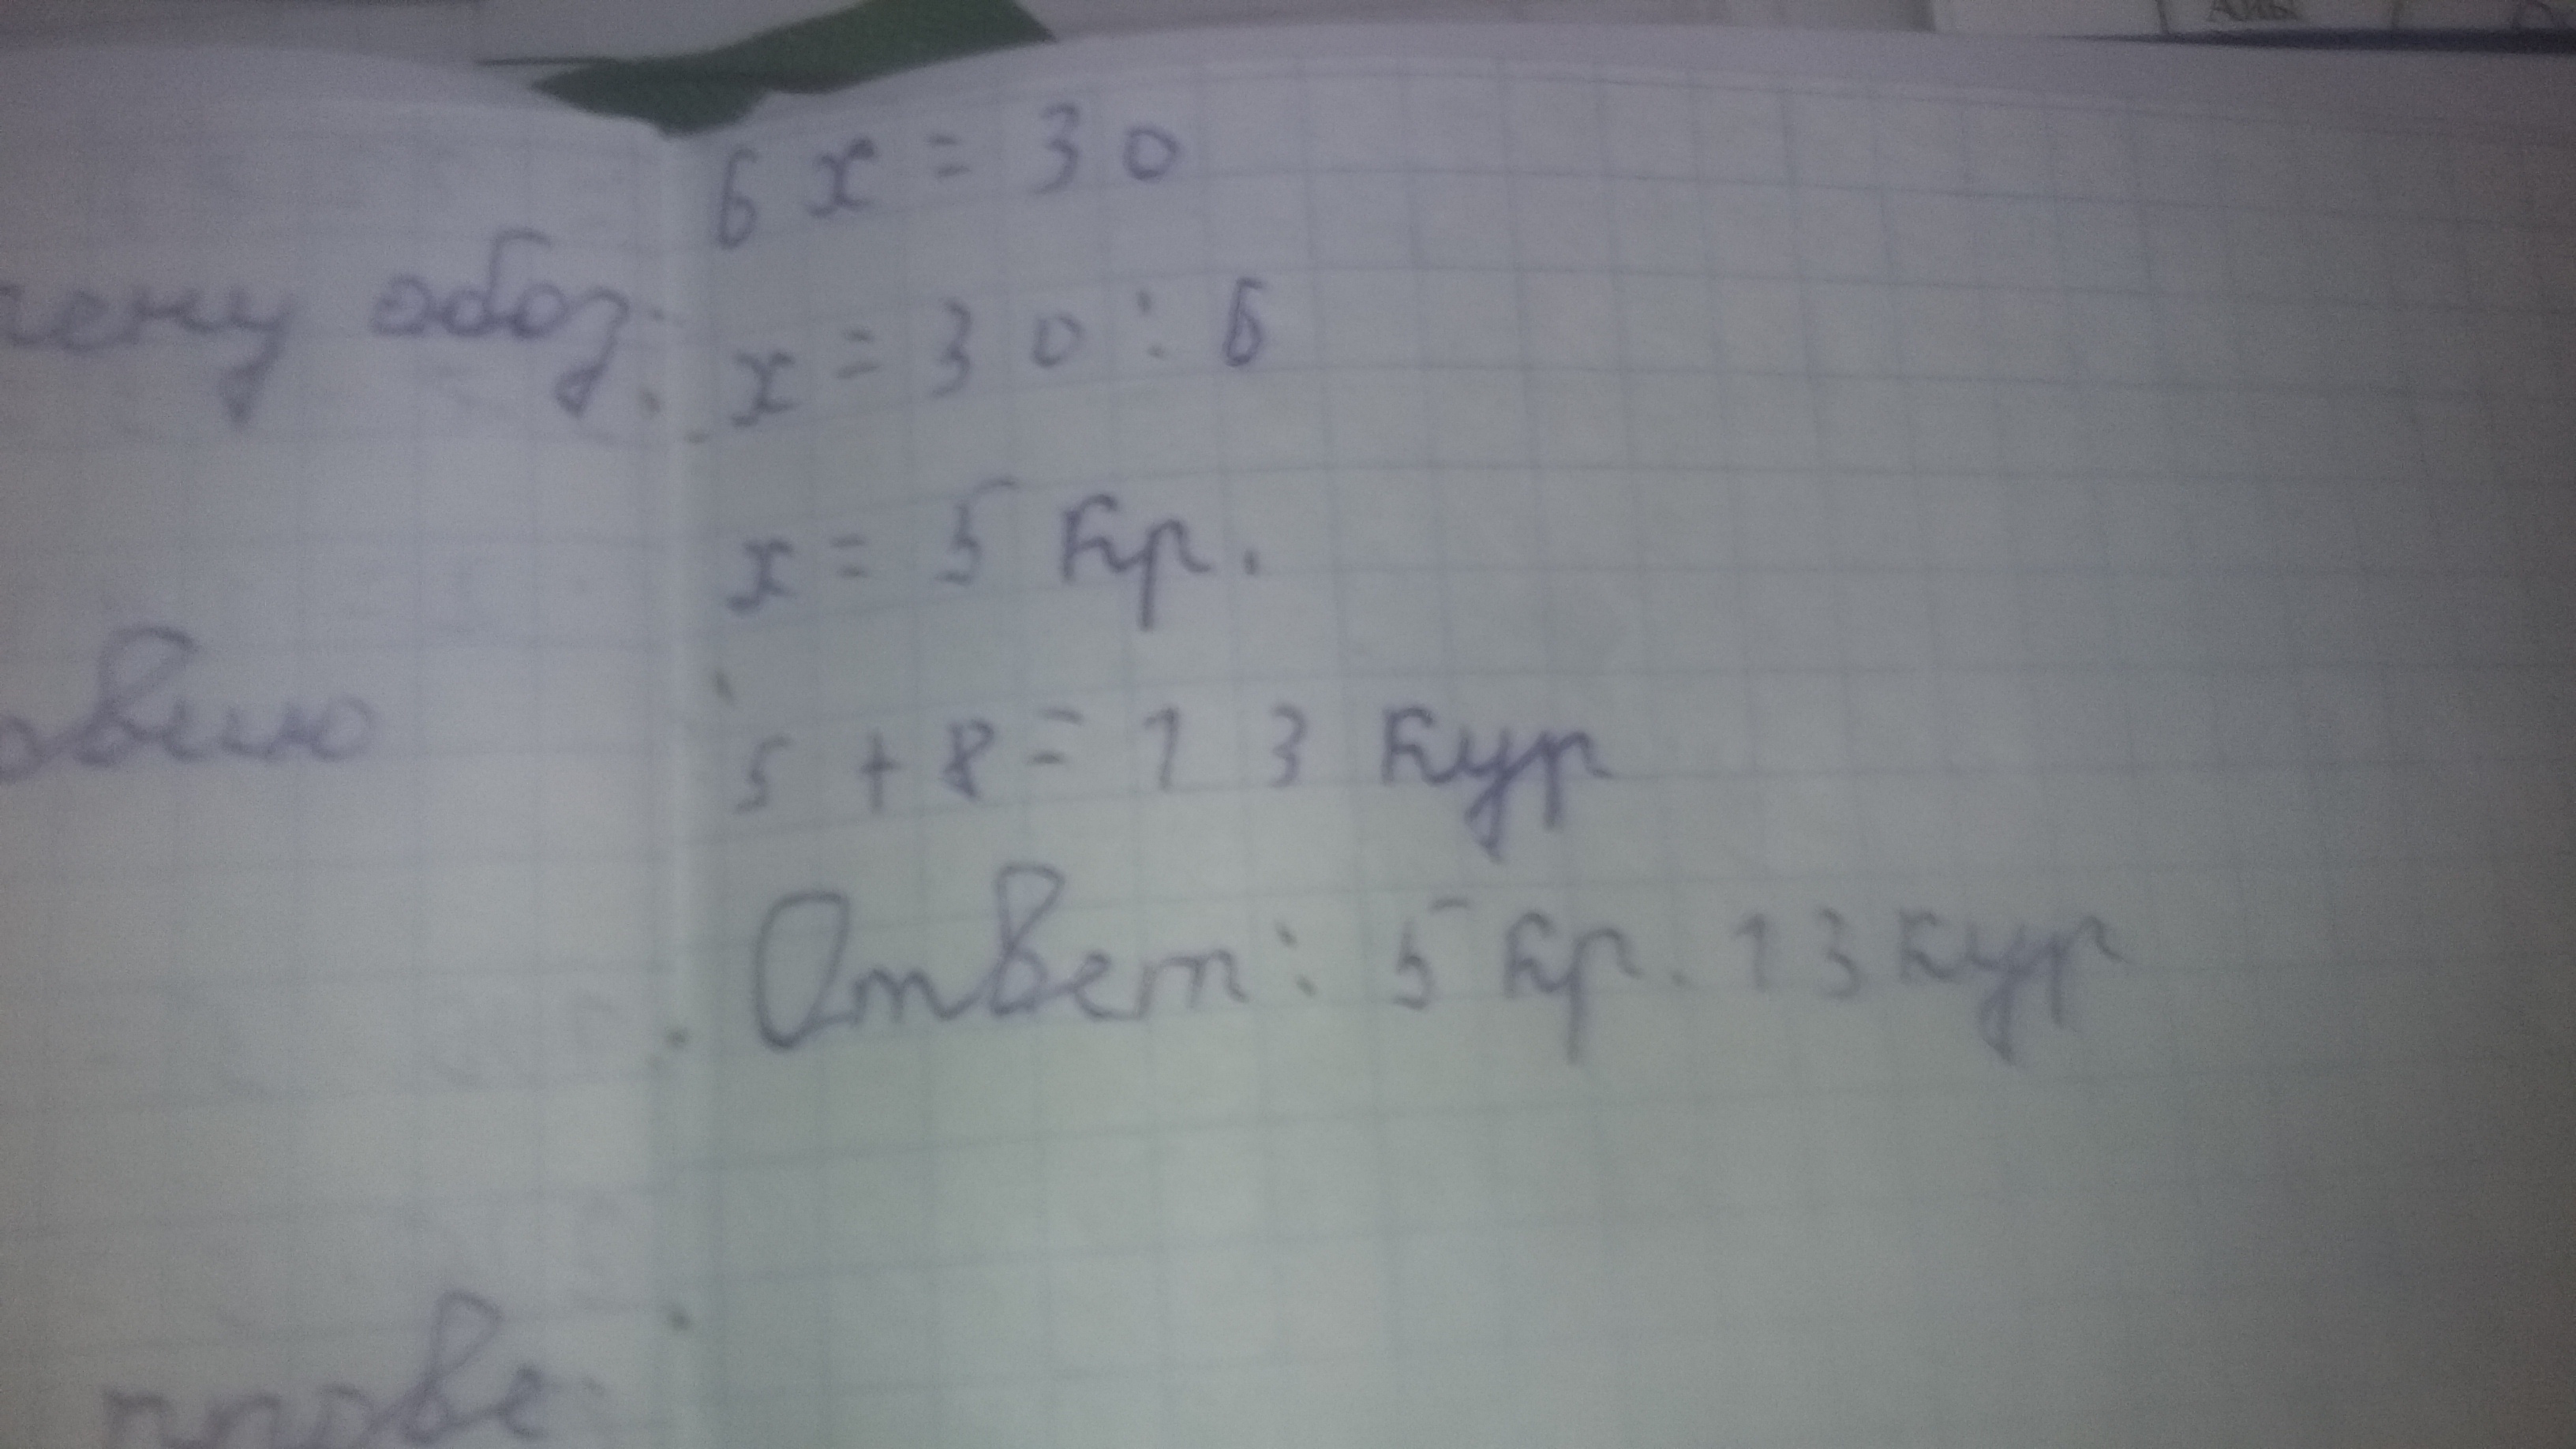 6x = 30
обоз.
x = 30 : 6
x = 5 кр.
5 + 8 = 13 кур
Ответ: 5 кр. 13 кур